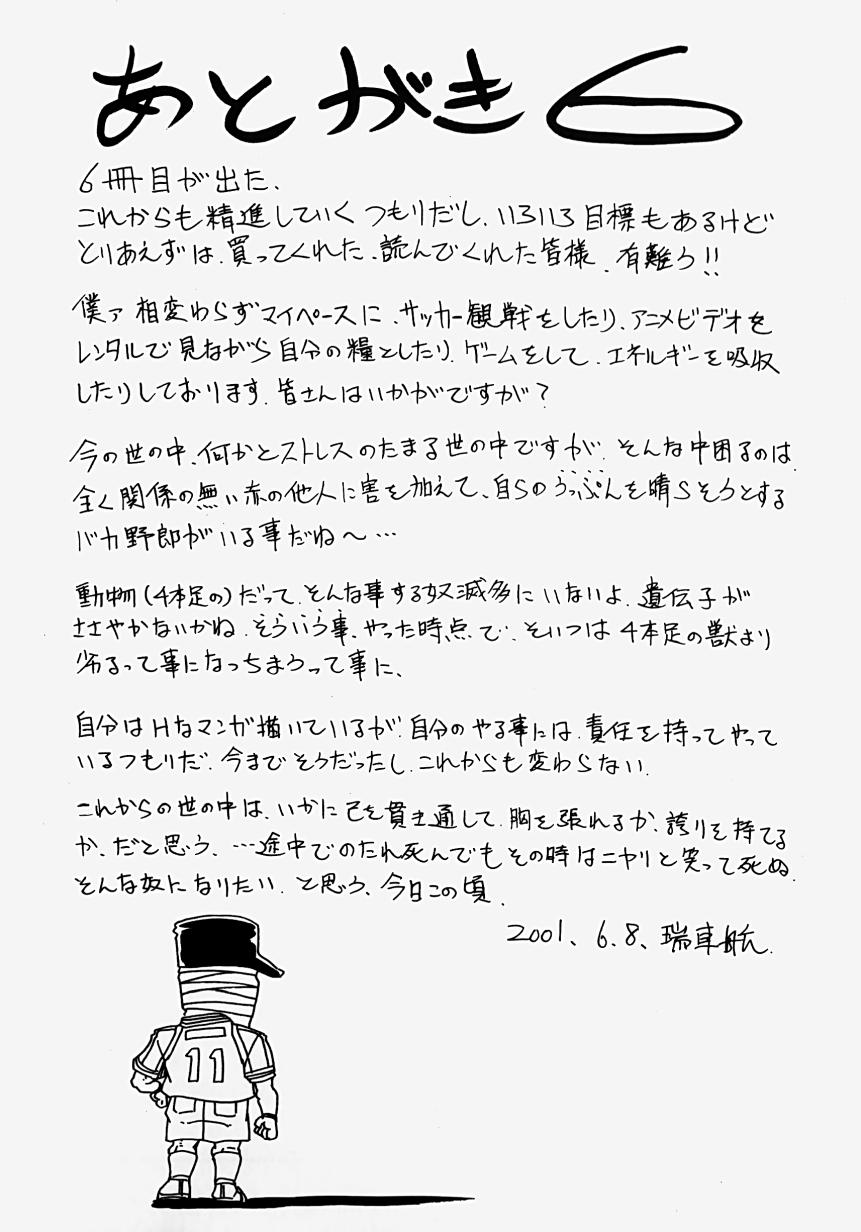 あとがき6
6冊目が出た、
これからも精進していくつもりだし、いろいろ目標もあるけど
とりあえずは、買ってくれた、読んでくれた皆様、有難う!!
僕ァ相変わらずマイペースに、サッカー観戦をしたり、アニメビデオを
レンタルで見ながら自分の糧としたり、ゲームをして、エネルギーを吸収
したりしております、皆さんはいかがですが?
今の世の中、何かとストレスのたまる世の中ですが、そんな中困るのは、
全く関係の無い赤の他人に害を加えて、自らのうっぷんを晴らそうとする
バカ野郎がいる事だね〜…
動物(4本足の)だって、そんな事する奴滅多にいないよ、遺伝子が
ささやかないかね、そういう事、やった時点で、そいつは4本足の獣より
劣るって事になっちまうって事に、
自分はHなマンガ描いているが、自分のやる事には、責任を持ってやって
いるつもりだ、今までそうだったし、これからも変わらない、
これからの世の中は、いかに己を貫き通して、胸を張れるか、誇りを持てる
か、だと思う、…途中でのたれ死んでもその時はニヤリと笑って死ぬ、
そんな奴になりたい、と思う、今日この頃、
2001、6.8、瑞車航、
11